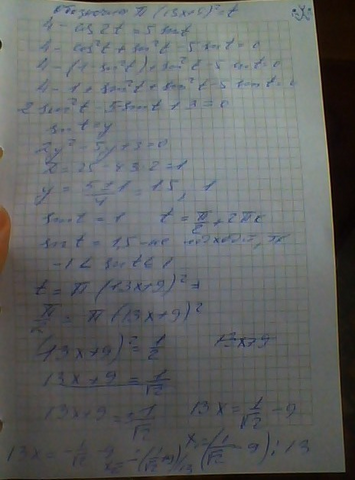 Обозначим π (13x+9)² = t
4 - cos 2t = 5 sin t
4 - cos²t + sin²t - 5 sin t = 0
4 - (1 - sin²t) + sin²t - 5 sin t = 0
4 - 1 + sin²t + sin²t - 5 sin t = 0
2 sin²t - 5 sin t + 3 = 0
sin t = y
2y² - 5y + 3 = 0
= 25 - 4·3·2 = 1
y = (5 ± 1)/4 = 1,5, 1
sin t = 1 t = π/2 + 2πk
sin t = 1,5 - не подходит, тк
-1 ≤ sin t ≤ 1
t = π (13x+9)² =>
π/2 = π (13x+9)²
(13x+9)² = 1/2 13x+9
13x + 9 = 1/√2
13x+9 = -1/√2 13x = 1/√2 - 9
13x = -1/√2 - 9 x₂ = -(1/√2 + 9)/13 x₁ = (1/√2 - 9) : 13